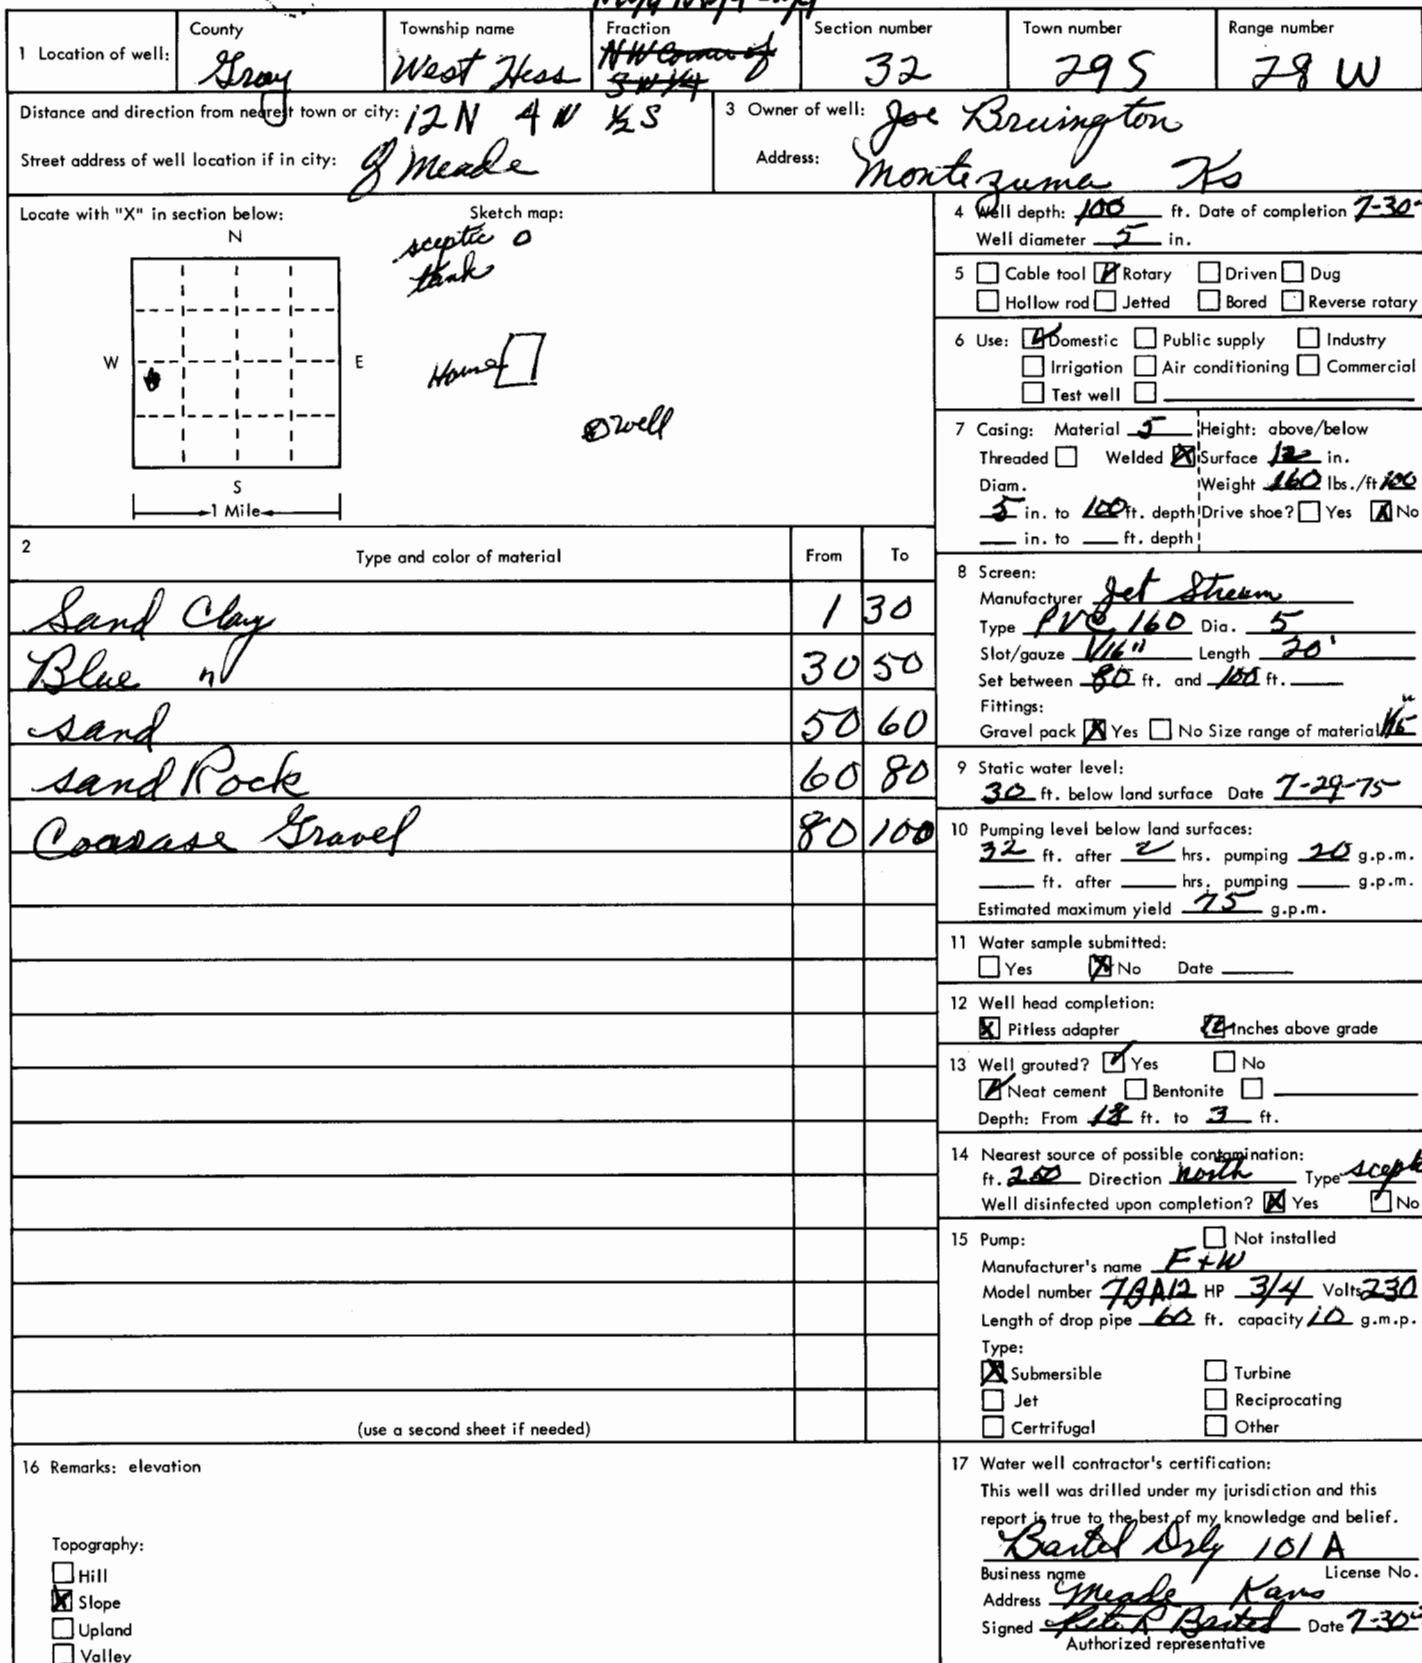 County Township name Fraction Section number Town number Range number
1 Location of well: Gray West Hess NW Corner of SW 1/4 32 29S 28 W
Distance and direction from nearest town or city: 12N 4W 1/2 S
Street address of well location if in city: of Meade
3 Owner of well: Joe Bruington
Address: Montezuma Ks
Locate with "X" in section below:
N
W E
S
1 Mile
Sketch map:
sceptic
tank
Home
well
4 Well depth: 100 ft. Date of completion 7-30-
Well diameter 5 in.
5 Cable tool Rotary Driven Dug
Hollow rod Jetted Bored Reverse rotary
6 Use: Domestic Public supply Industry
Irrigation Air conditioning Commercial
Test well
7 Casing: Material 5 Height: above/below
Threaded Welded Surface 12 in.
Diam. Weight 160 lbs./ft 100
5 in. to 100 ft. depth Drive shoe? Yes No
in. to ft. depth
2 Type and color of material From To
Sand Clay 1 30
Blue " 30 50
sand 50 60
sand Rock 60 80
Coarase Gravel 80 100
(use a second sheet if needed)
8 Screen:
Manufacturer Jet Stream
Type PVC 160 Dia. 5
Slot/gauze 1/16" Length 20'
Set between 80 ft. and 100 ft.
Fittings:
Gravel pack Yes No Size range of material
9 Static water level:
30 ft. below land surface Date 7-29-75
10 Pumping level below land surfaces:
32 ft. after 2 hrs. pumping 20 g.p.m.
ft. after hrs. pumping g.p.m.
Estimated maximum yield 75 g.p.m.
11 Water sample submitted:
Yes No Date
12 Well head completion:
Pitless adapter 12 Inches above grade
13 Well grouted? Yes No
Neat cement Bentonite
Depth: From 18 ft. to 3 ft.
14 Nearest source of possible contamination:
ft. 250 Direction north Type scept
Well disinfected upon completion? Yes No
15 Pump: Not installed
Manufacturer's name F+W
Model number 7BA12 HP 3/4 Volts 230
Length of drop pipe 60 ft. capacity 10 g.m.p.
Type:
Submersible Turbine
Jet Reciprocating
Certrifugal Other
16 Remarks: elevation
Topography:
Hill
Slope
Upland
Valley
17 Water well contractor's certification:
This well was drilled under my jurisdiction and this
report is true to the best of my knowledge and belief.
Bartel Drlg 101 A
Business name License No.
Address Meade Kans
Signed Pete R Bartel Date 7-30
Authorized representative